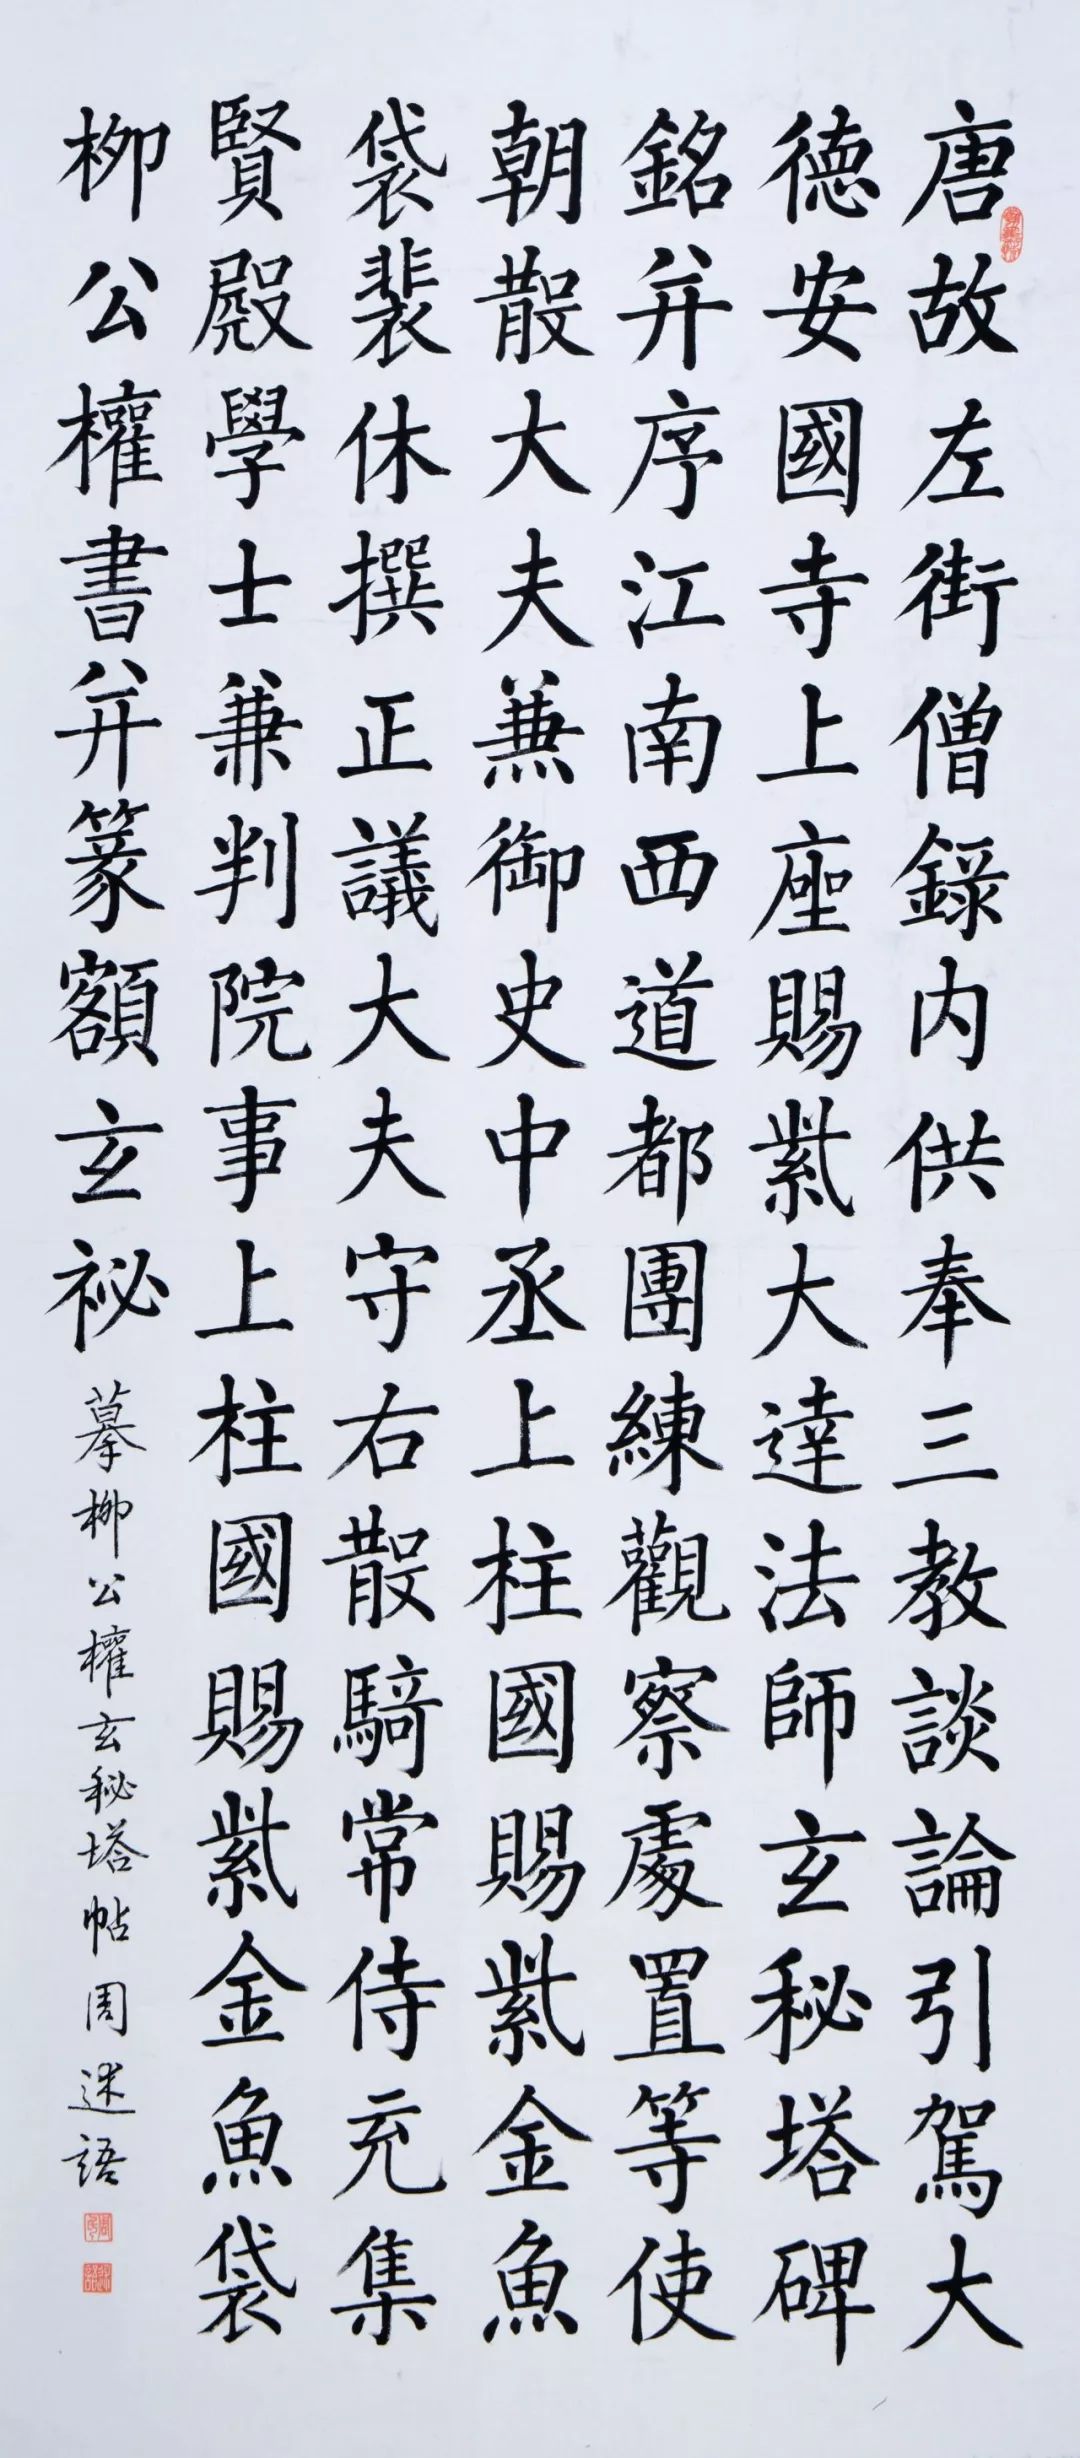 唐故左街僧錄內供奉三教談論引駕大
德安國寺上座賜紫大達法師玄秘塔碑
銘并序江南西道都團練觀察處置等使
朝散大夫兼御史中丞上柱國賜紫金魚
袋裴休撰正議大夫守右散騎常侍充集
賢殿學士兼判院事上柱國賜紫金魚袋
柳公權書并篆額玄祕
摹柳公權玄秘塔帖周迷語